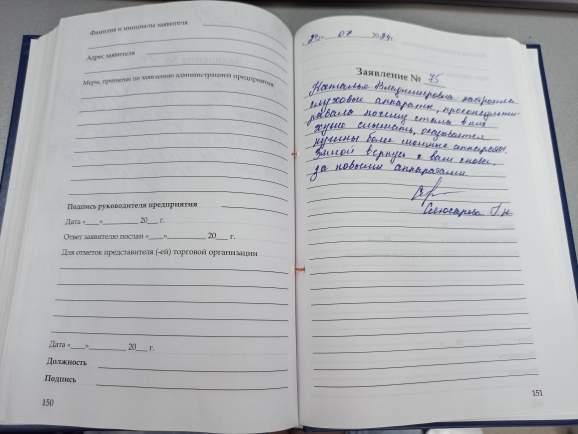 Фамилия и инициалы заявителя
Адрес заявителя
Меры, принятые по заявлению администрацией предприятия
Подпись руководителя предприятия
Дата «___»__________ 20___ г.
Ответ заявителю послан «___»__________ 20___ г.
Для отметок представителя (-ей) торговой организации
Дата «___»__________ 20___ г.
Должность
Подпись
150
07
Заявление № 75
Наталья Владимировна настроила
слуховые аппараты, проконсульти-
ровала почему стала в них
хуже слышать, оказывается
нужны более мощные аппараты.
Зимой вернусь к вам снова,
за новыми аппаратами
151